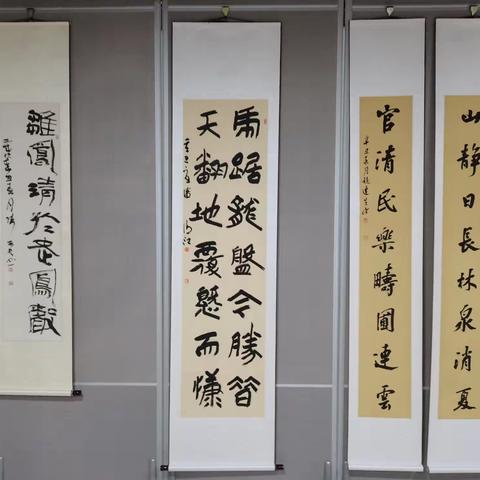 雛鳳清於老鳳聲
虎踞龍盤今勝昔
天翻地覆慨而慷
官清民樂疇圃連雲
山靜日長林泉消夏